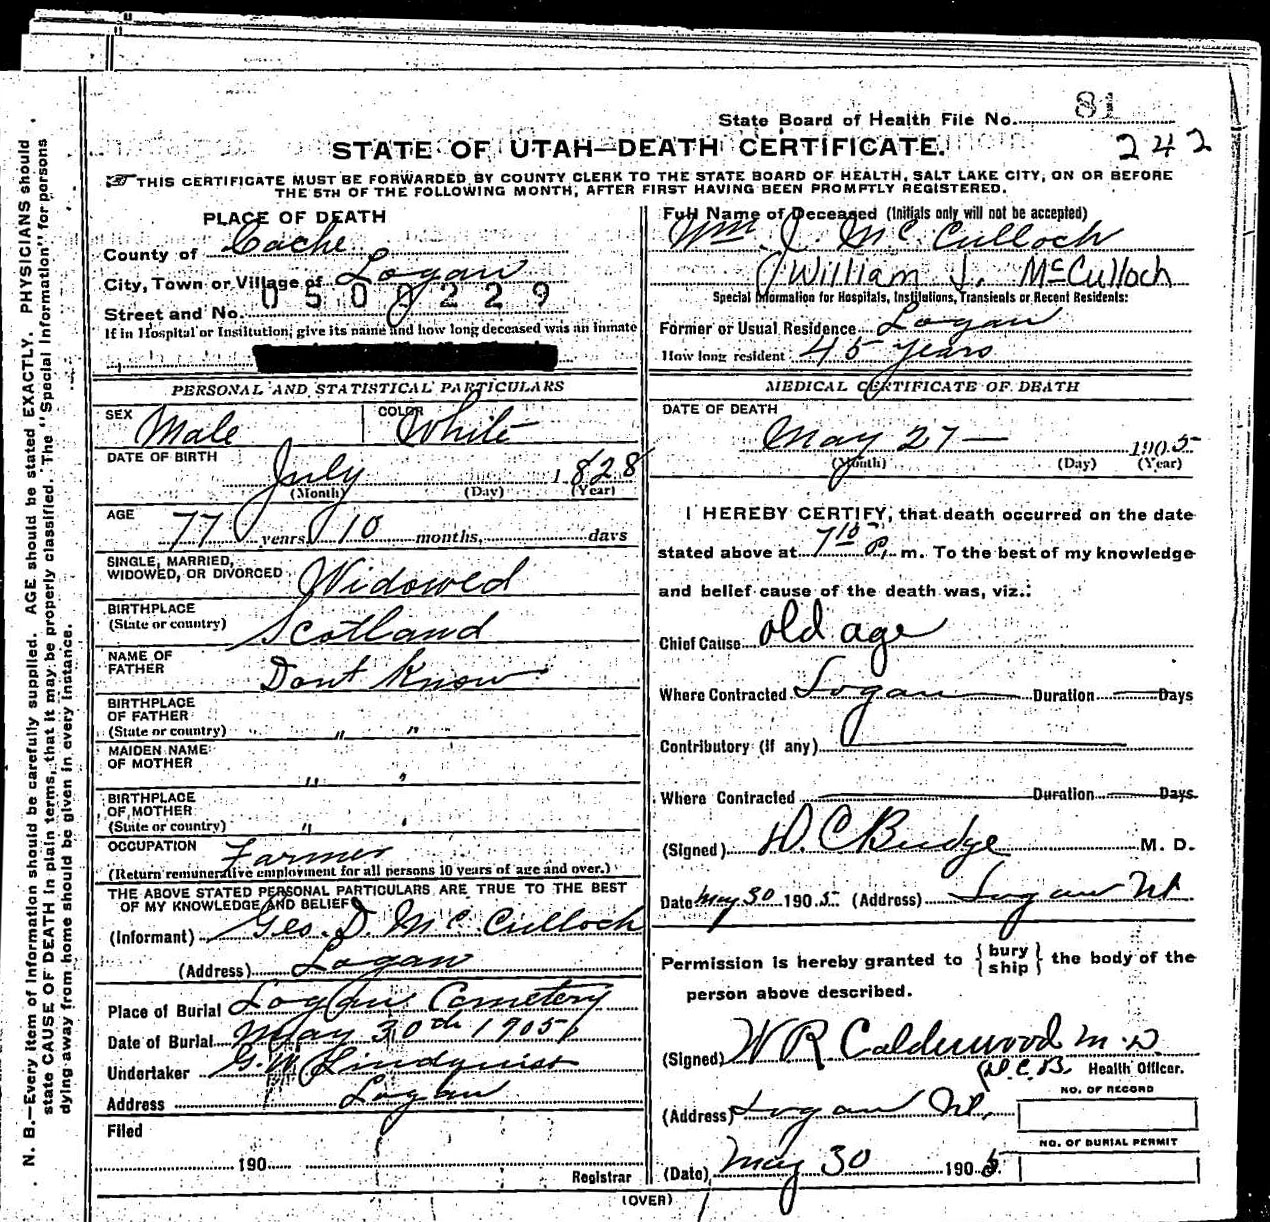 State Board of Health File No. 81
242
STATE OF UTAH—DEATH CERTIFICATE.
THIS CERTIFICATE MUST BE FORWARDED BY COUNTY CLERK TO THE STATE BOARD OF HEALTH, SALT LAKE CITY, ON OR BEFORE
THE 5TH OF THE FOLLOWING MONTH, AFTER FIRST HAVING BEEN PROMPTLY REGISTERED.
PLACE OF DEATH
County of Cache
City, Town or Village of Logan
0500229
Street and No.
If in Hospital or Institution, give its name and how long deceased was an inmate
PERSONAL AND STATISTICAL PARTICULARS
SEX Male COLOR White
DATE OF BIRTH
July 1828
(Month) (Day) (Year)
AGE
77 years 10 months, days
SINGLE, MARRIED,
WIDOWED, OR DIVORCED Widowed
BIRTHPLACE
(State or country) Scotland
NAME OF
FATHER Dont Know
BIRTHPLACE
OF FATHER
(State or country) " "
MAIDEN NAME
OF MOTHER " "
BIRTHPLACE
OF MOTHER
(State or country) " "
OCCUPATION Farmer
(Return remunerative employment for all persons 10 years of age and over.)
THE ABOVE STATED PERSONAL PARTICULARS ARE TRUE TO THE BEST
OF MY KNOWLEDGE AND BELIEF
(Informant) Geo. D. McCulloch
(Address) Logan
Place of Burial Logan Cemetery
Date of Burial May 30th 1905
Undertaker G.W. Lindquist
Address Logan
Filed
190
Registrar
Full Name of Deceased (Initials only will not be accepted)
Wm. J. McCulloch
William J. McCulloch
Special Information for Hospitals, Institutions, Transients or Recent Residents:
Former or Usual Residence Logan
How long resident 45 years
MEDICAL CERTIFICATE OF DEATH
DATE OF DEATH
May 27 — 1905
(Month) (Day) (Year)
I HEREBY CERTIFY, that death occurred on the date
stated above at 7 10 P. m. To the best of my knowledge
and belief cause of the death was, viz.:
Chief Cause old age
Where Contracted Logan Duration — Days
Contributory (if any)
Where Contracted Duration Days
(Signed) D. C. Budge M. D.
Date May 30 1905 (Address) Logan Ut
Permission is hereby granted to {bury
ship} the body of the
person above described.
(Signed) W R Calderwood M.D.
D.C.B. Health Officer.
NO. OF RECORD
(Address) Logan Ut.
NO. OF BURIAL PERMIT
(Date) May 30 1905
(OVER)
N. B.—Every item of information should be carefully supplied. AGE should be stated EXACTLY. PHYSICIANS should
state CAUSE OF DEATH in plain terms, that it may be properly classified. The "Special Information" for persons
dying away from home should be given in every instance.